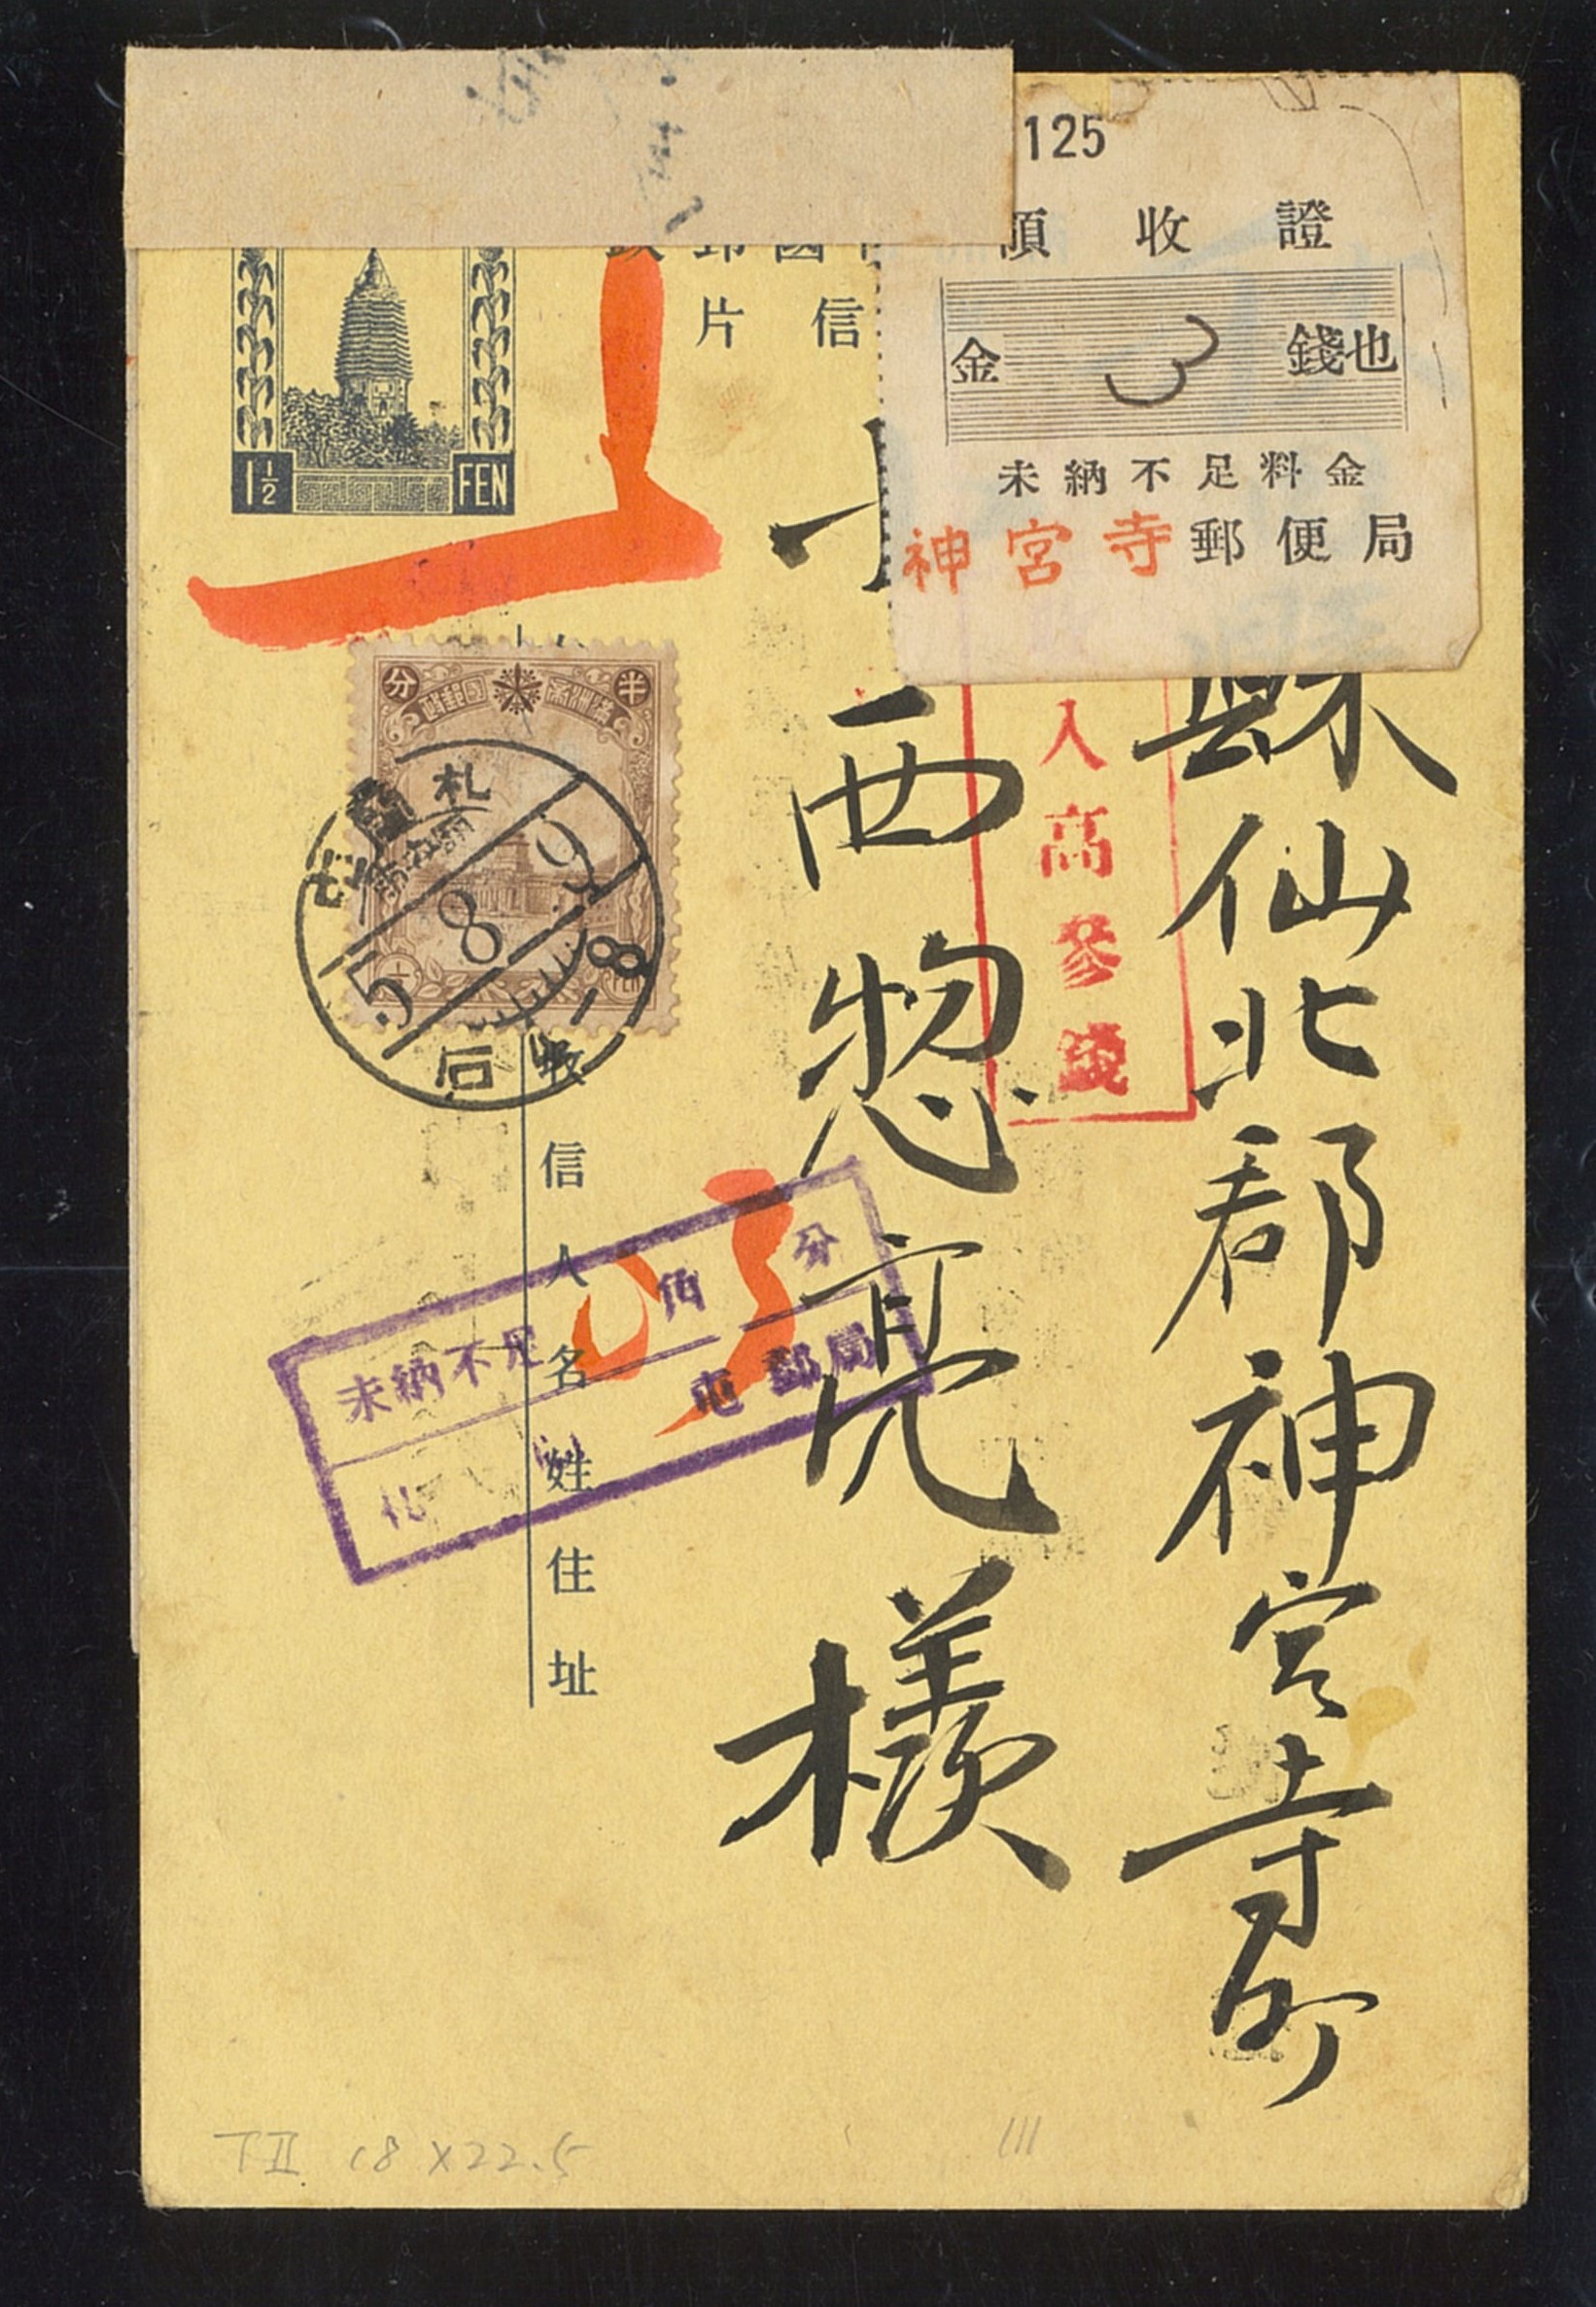 125
領收證
金 3 錢也
未納不足料金
神宮寺郵便局
片 信
1½ FEN
分 半
札
5 8 9
后 -8
收信人名姓住址
入高參錢
未納不足 角 分
屯郵局
縣仙北郡神宮寺町
西惣亮様
TII 18 x 22.5